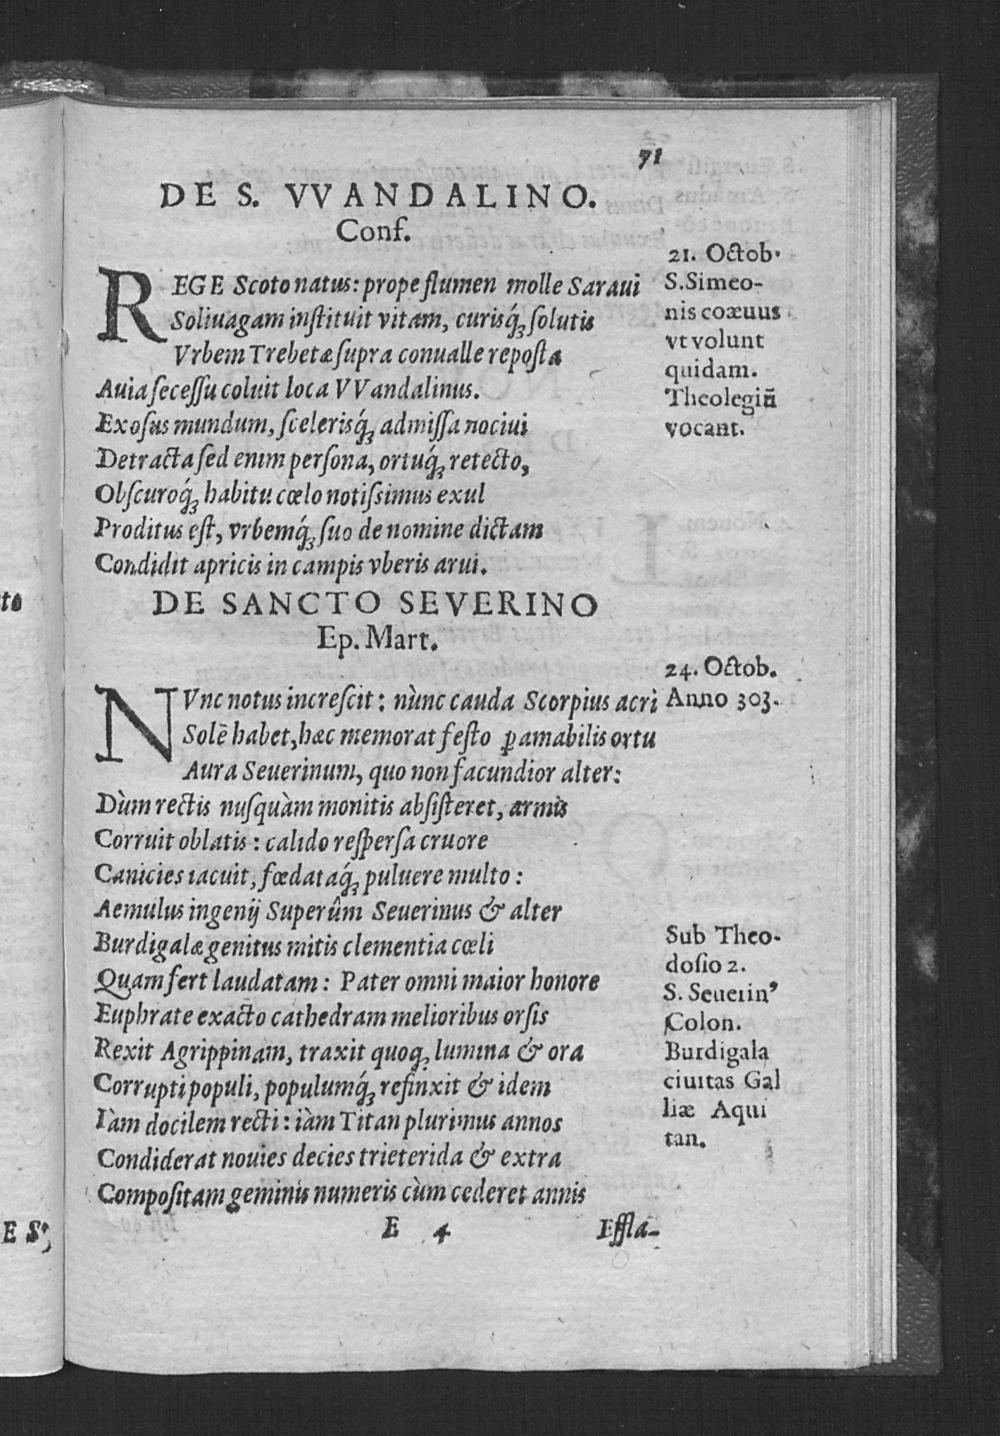 71
DE S. VVANDALINO.
Conf.
REGE Scoto natus: prope flumen molle Saraui
Soliuagam instituit vitam, curisq́; solutis
Vrbem Trebetæ supra conualle reposta
Auia secessu coluit loca VVandalinus.
Exosus mundum, scelerisq́; admissa nociui
Detracta sed enim persona, ortuq́; retecto,
Obscuroq́; habitu cœlo notissimus exul
Proditus est, vrbemq́; suo de nomine dictam
Condidit apricis in campis vberis arui.
21. Octob.
S. Simeo-
nis coæuus
vt volunt
quidam.
Theolegiũ
vocant.
DE SANCTO SEVERINO
Ep. Mart.
NVnc notus increscit: nùnc cauda Scorpius acri
Solẽ habet, hæc memorat festo ꝑamabilis ortu
Aura Seuerinum, quo non facundior alter:
Dùm rectis nusquàm monitis absisteret, armis
Corruit oblatis: calido respersa cruore
Canicies iacuit, fœdataq́; puluere multo:
Aemulus ingenij Superûm Seuerinus & alter
Burdigalæ genitus mitis clementia cœli
Quam fert laudatam: Pater omni maior honore
Euphrate exacto cathedram melioribus orsis
Rexit Agrippinam, traxit quoq; lumina & ora
Corrupti populi, populumq́; refinxit & idem
Iàm docilem recti: iàm Titan plurimus annos
Condiderat nouies decies trieterida & extra
Compositam geminis numeris cùm cederet annis
24. Octob.
Anno 303.
Sub Theo-
dosio 2.
S. Seuerin'
Colon.
Burdigala
ciuitas Gal
liæ Aqui
tan.
E 4
Effla-
E S;